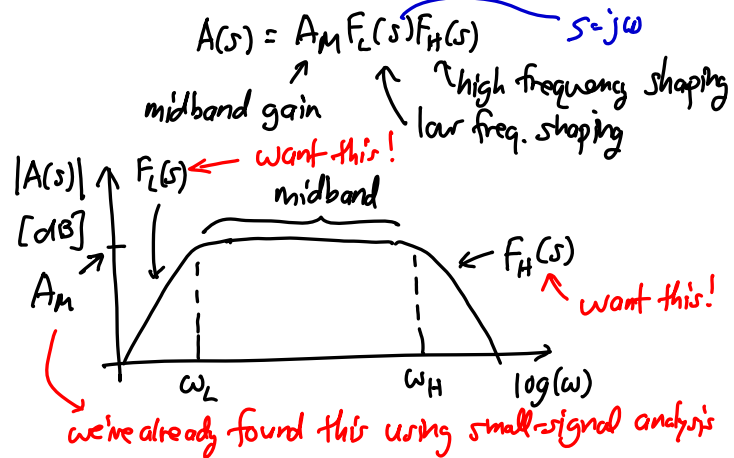 A(s) = A_M F_L(s) F_H(s)
s=jω
high frequency shaping
midband gain
low freq. shaping
want this!
|A(s)|
F_L(s)
midband
[dB]
F_H(s)
A_M
want this!
ω_L
ω_H
log(ω)
we've already found this using small-signal analysis